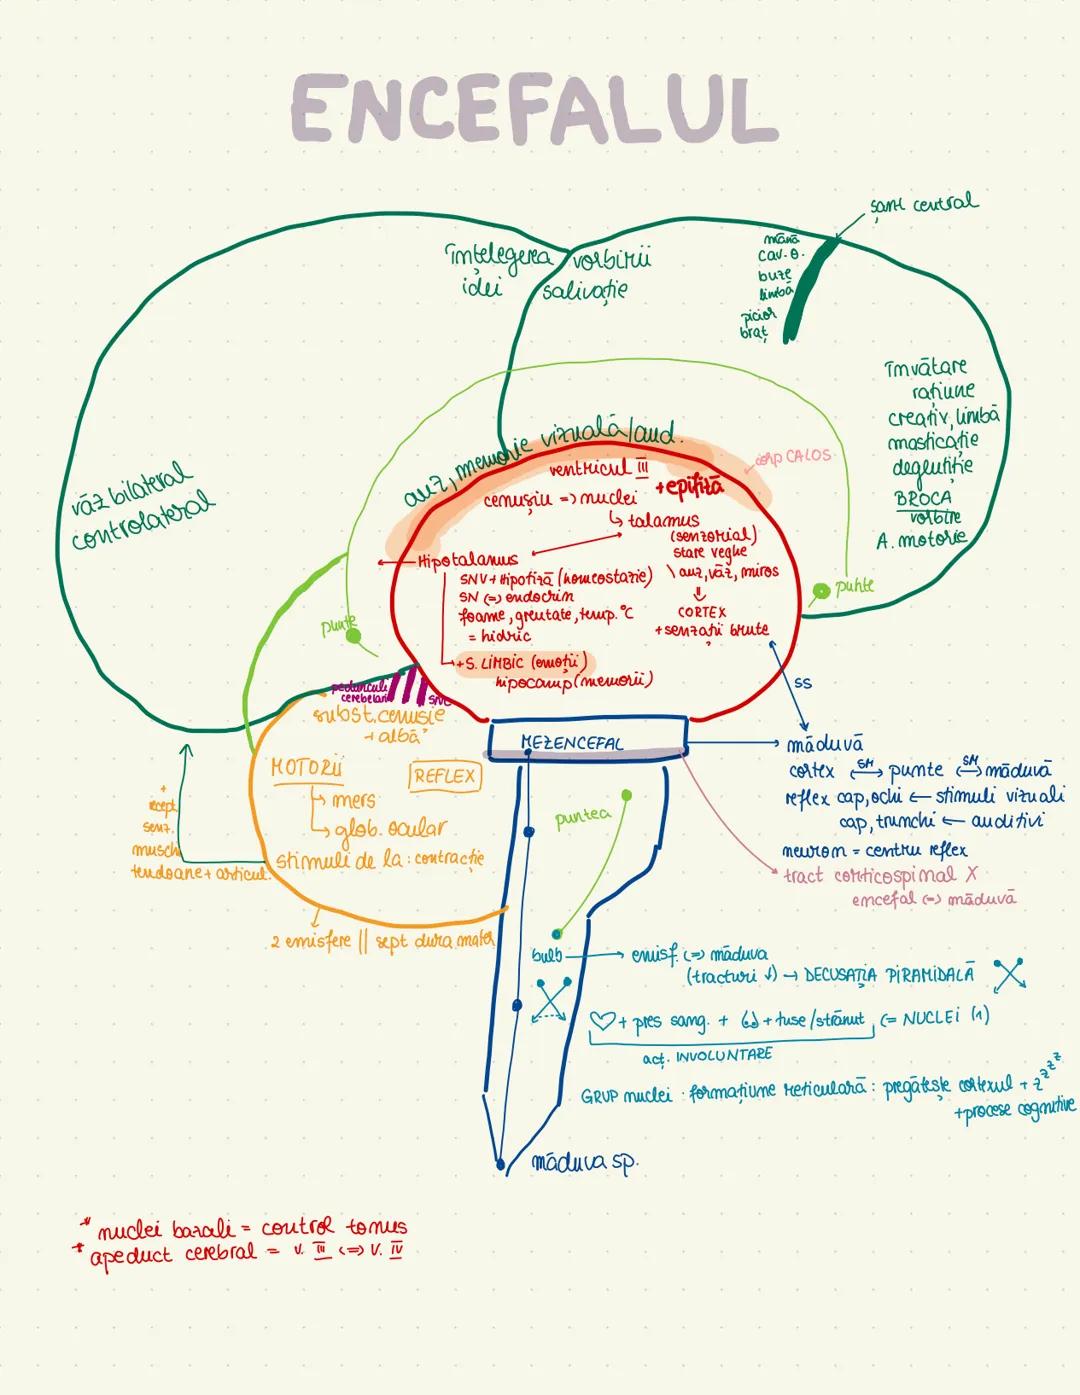 ENCEFALUL
șanț central
înțelegerea vorbirii
idei salivație
mână
cav. o.
buze
limbă
picior
braț
învătare
rațiune
creativ, limbă
masticație
deglutiție
BROCA
vorbire
A. motorie
auz, memorie vizuală/aud.
văz bilateral
controlateral
corp CALOS
ventricul III
+ epifiză
cenușiu => nuclei
talamus
(senzorial)
stare veghe
auz, văz, miros
CORTEX
+ senzații brute
Hipotalamus
SNV + Hipofiză (homeostazie)
SN <=> endocrin
foame, greutate, temp. °C
= hidric
+ S. LIMBIC (emoții)
hipocamp (memorii)
punte
punte
pedunculi
cerebelari
subst. cenușie
+ albă
MOTORII
REFLEX
mers
glob. ocular
stimuli de la: contracție
+
recept.
senz.
mușchi
tendoane + articul.
2 emisfere || sept dura mater
MEZENCEFAL
SS
măduvă
cortex <-SM-> punte <-SM-> măduvă
reflex cap, ochi ← stimuli vizuali
cap, trunchi ← auditivi
neuron = centru reflex
tract corticospinal X
encefal <=> măduvă
puntea
bulb → emisf. <=> măduva
(tracturi ↓) → DECUSAȚIA PIRAMIDALĂ
♡ + pres sang. + + tuse/strănut <= NUCLEI (1)
act. INVOLUNTARE
GRUP nuclei · formațiune reticulară: pregătește cortexul + zzzz
+ procese cognitive
măduva sp.
* nuclei bazali = control tonus
* apeduct cerebral = v. III <=> v. IV